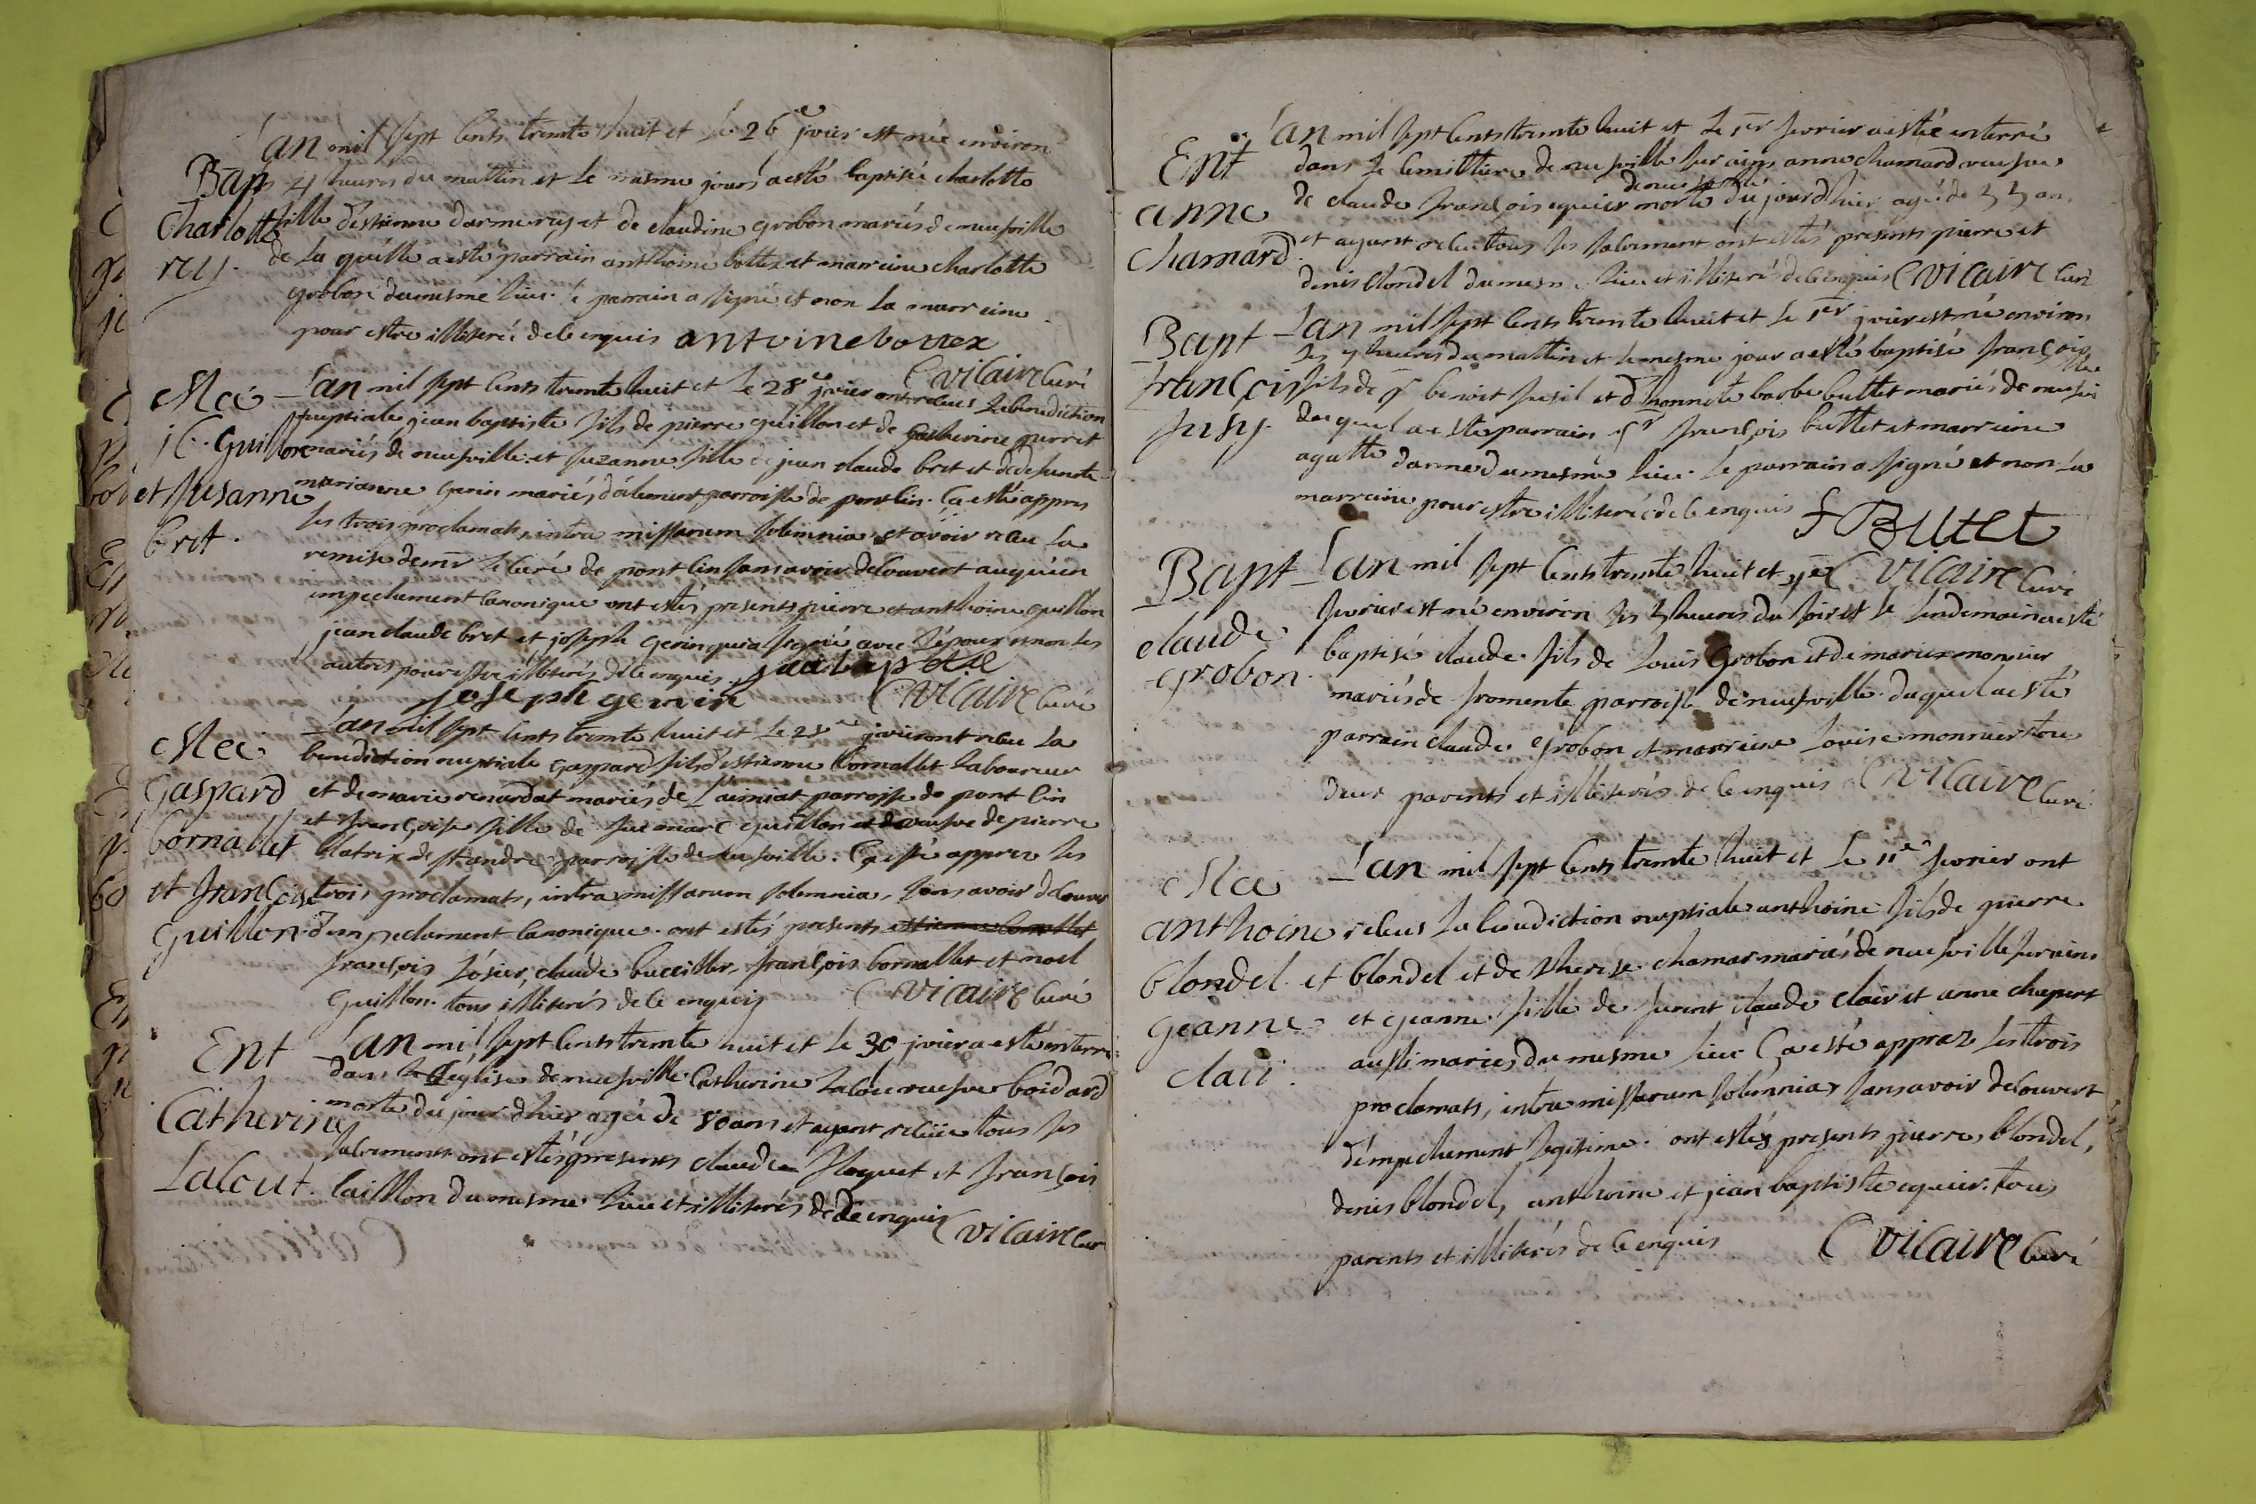 L'an mil sept cents trente huit et le 26e jvier est née environ
Bap
les 4 heures du mattin et le mesme jours a esté baptisée charlotte
Charlotte
fille d'estienne darmerey et de claudine grobon mariés de neufville
rey.
de la quelle a esté parrain anthoine bottex et marreine charlotte
grobon du mesme lieu. le parrain a signé et non la marreine
pour estre illiterée de ce enquis antoine bottex
C vicaire curé
Mce
L'an mil sept cents trente huit et le 28e jvier ont receus la benediction
nuptiale jean baptiste fils de pierre guillon et de catherine perret
guillon
mariés de neufville et suzanne fille de jean claude bret et de defuncte
et susanne
marianne gerin mariés parroisse de pont lin. ça esté appres
bret.
les trois proclamats, intra missarum solemnia et avoir receu la
remise de mr le curé de pont lin sans avoir decouvert auqu'un
impechement canonique ont estés presents pierre et anthoine guillon
jean claude bret et joseph gerin qui a signé avec l'époux non les
autres pour estre illiterés de ce enquis. jean baptiste
joseph gerin C vicaire curé
Mce
L'an mil sept cents trente huit et le 28e jvier ont receu la
benediction nuptiale gaspard fils d'estienne bornallet laboureur
gaspard
et de marie renardat mariés de parroisse de pont lin
bornallet
et françoise fille de feu marc guillon et veufve de pierre
blatrix de st andre parroisse de neufville. ça esté apprez les
et françoise
trois proclamats, intra missarum solemnia, sans avoir decouver
guillon.
d'impechement canonique. ont estés presents estienne bornallet
françois claude françois bornallet et noel
guillon. tous illiterés de ce enquis C vicaire curé
Ent
L'an mil sept cents trente huit et le 30 jvier a esté enterré
dans l'eglise de neufville catherine lacou veufve boidard
Catherine
morte du jour d'hier agée de 80 ans et ayant receüe tous les
sacrements ont estés presents claude floquet et françois
Lacout.
caillon du mesme lieu et illiterés de ce enquis C vicaire cur
L'an mil sept cents trente huit et le 1er fevrier a estée enterrée
Ent
dans le cemittiere de neufville sur ains anne chamard veufve
de neufville
anne
de claude françois equier morte du jourd'hier agée de 55 an
chamard.
et ayant receu tous les sacrement ont estés presents pierre et
denis blondel du mesme lieu et illiterés de ce enquis C vicaire curé
Bapt
L'an mil sept cents trente huit et le 1er jvier est né environ
les heures du mattin et le mesme jour a esté baptisé françois
françois
fils de benoit fusil et d'honneste barbe buttet mariés de neufville
fusy.
duquel a esté parrain sr françois buttet et marreine
agatte danne du mesme lieu. le parrain a signé et non la
marraine pour estre illiterée de ce enquis f Butet
Bapt
L'an mil sept cents trente huit et C vicaire curé
fevrier est né environ les 5 heures du soir et le lendemain a esté
claude
baptisé claude fils de louis grobon et de marie monnier
grobon.
mariés de fromente parroisse de neufville. duquel a esté
parrain claude grobon et marreine louise monnier tou
deux parents et illiterés de ce enquis C vicaire curé
Mce
L'an mil sept cents trente huit et le 11e fevrier ont
anthoine
receus la benediction nuptiale anthoine fils de pierre
blondel. et
blondel et de therese chamar mariés de neufville sur ains
geanne
et geanne fille de furent claude clair et anne chapert
clair.
aussi mariés du mesme lieu ça esté apprez les trois
proclamats, intra missarum solemnia, sans avoir decouvert
d'impechement legitime. ont estés presents pierre blondel,
denis blondel, anthoine et jean baptiste equier. tous
parents et illiterés de ce enquis C vicaire curé